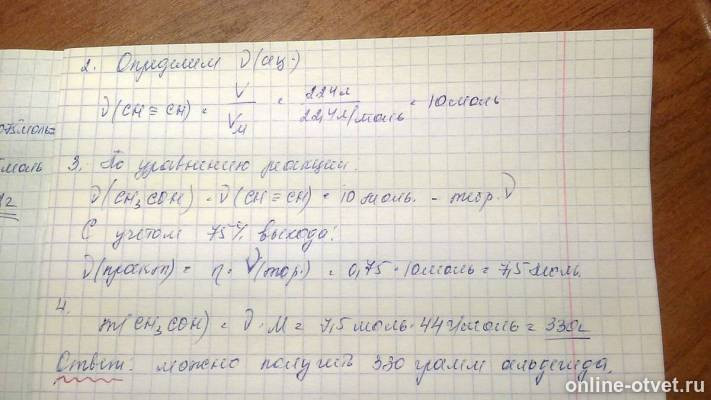 2. Определим ν(ац.)
ν(CH≡CH) = V/Vм = 224л/22,4л/моль = 10моль
3. По уравнению реакции.
ν(CH₃COH) = ν(CH≡CH) = 10 моль. - теор. ν
С учетом 75% выхода:
ν(практ) = η · ν(теор.) = 0,75 · 10моль = 7,5 моль.
4.
m(CH₃COH) = ν · M = 7,5 моль · 44г/моль = 330г
Ответ: можно получить 330 грамм альдегида.
075моль=
моль
г
online-otvet.ru